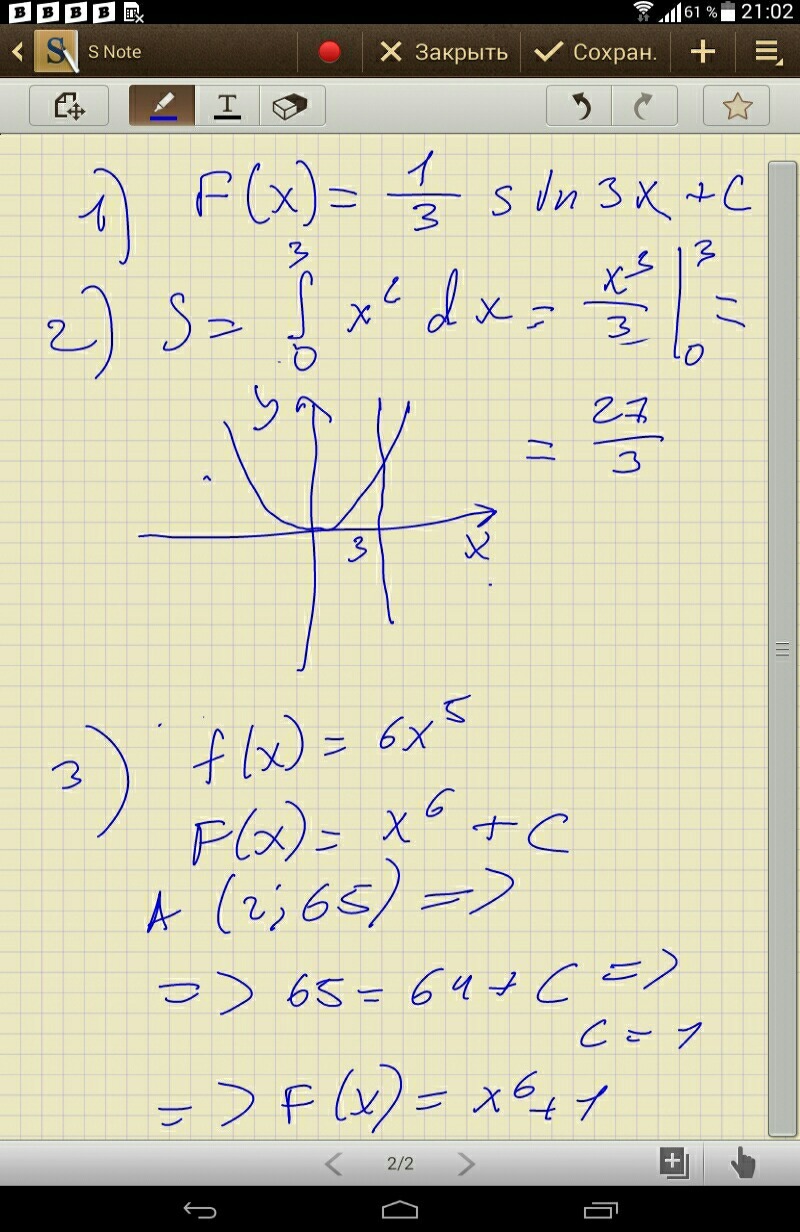 B B B B 61 % 21:02
S S Note Закрыть Сохран.
T
1) F(x) = 1/3 sin 3x + C
2) S = ∫₀³ x² dx = x³/3 |₀³ =
= 27/3
y
3 x
3) f(x) = 6x⁵
F(x) = x⁶ + C
A (2; 65) =>
=> 65 = 64 + C =>
C = 1
=> F(x) = x⁶ + 1
2/2